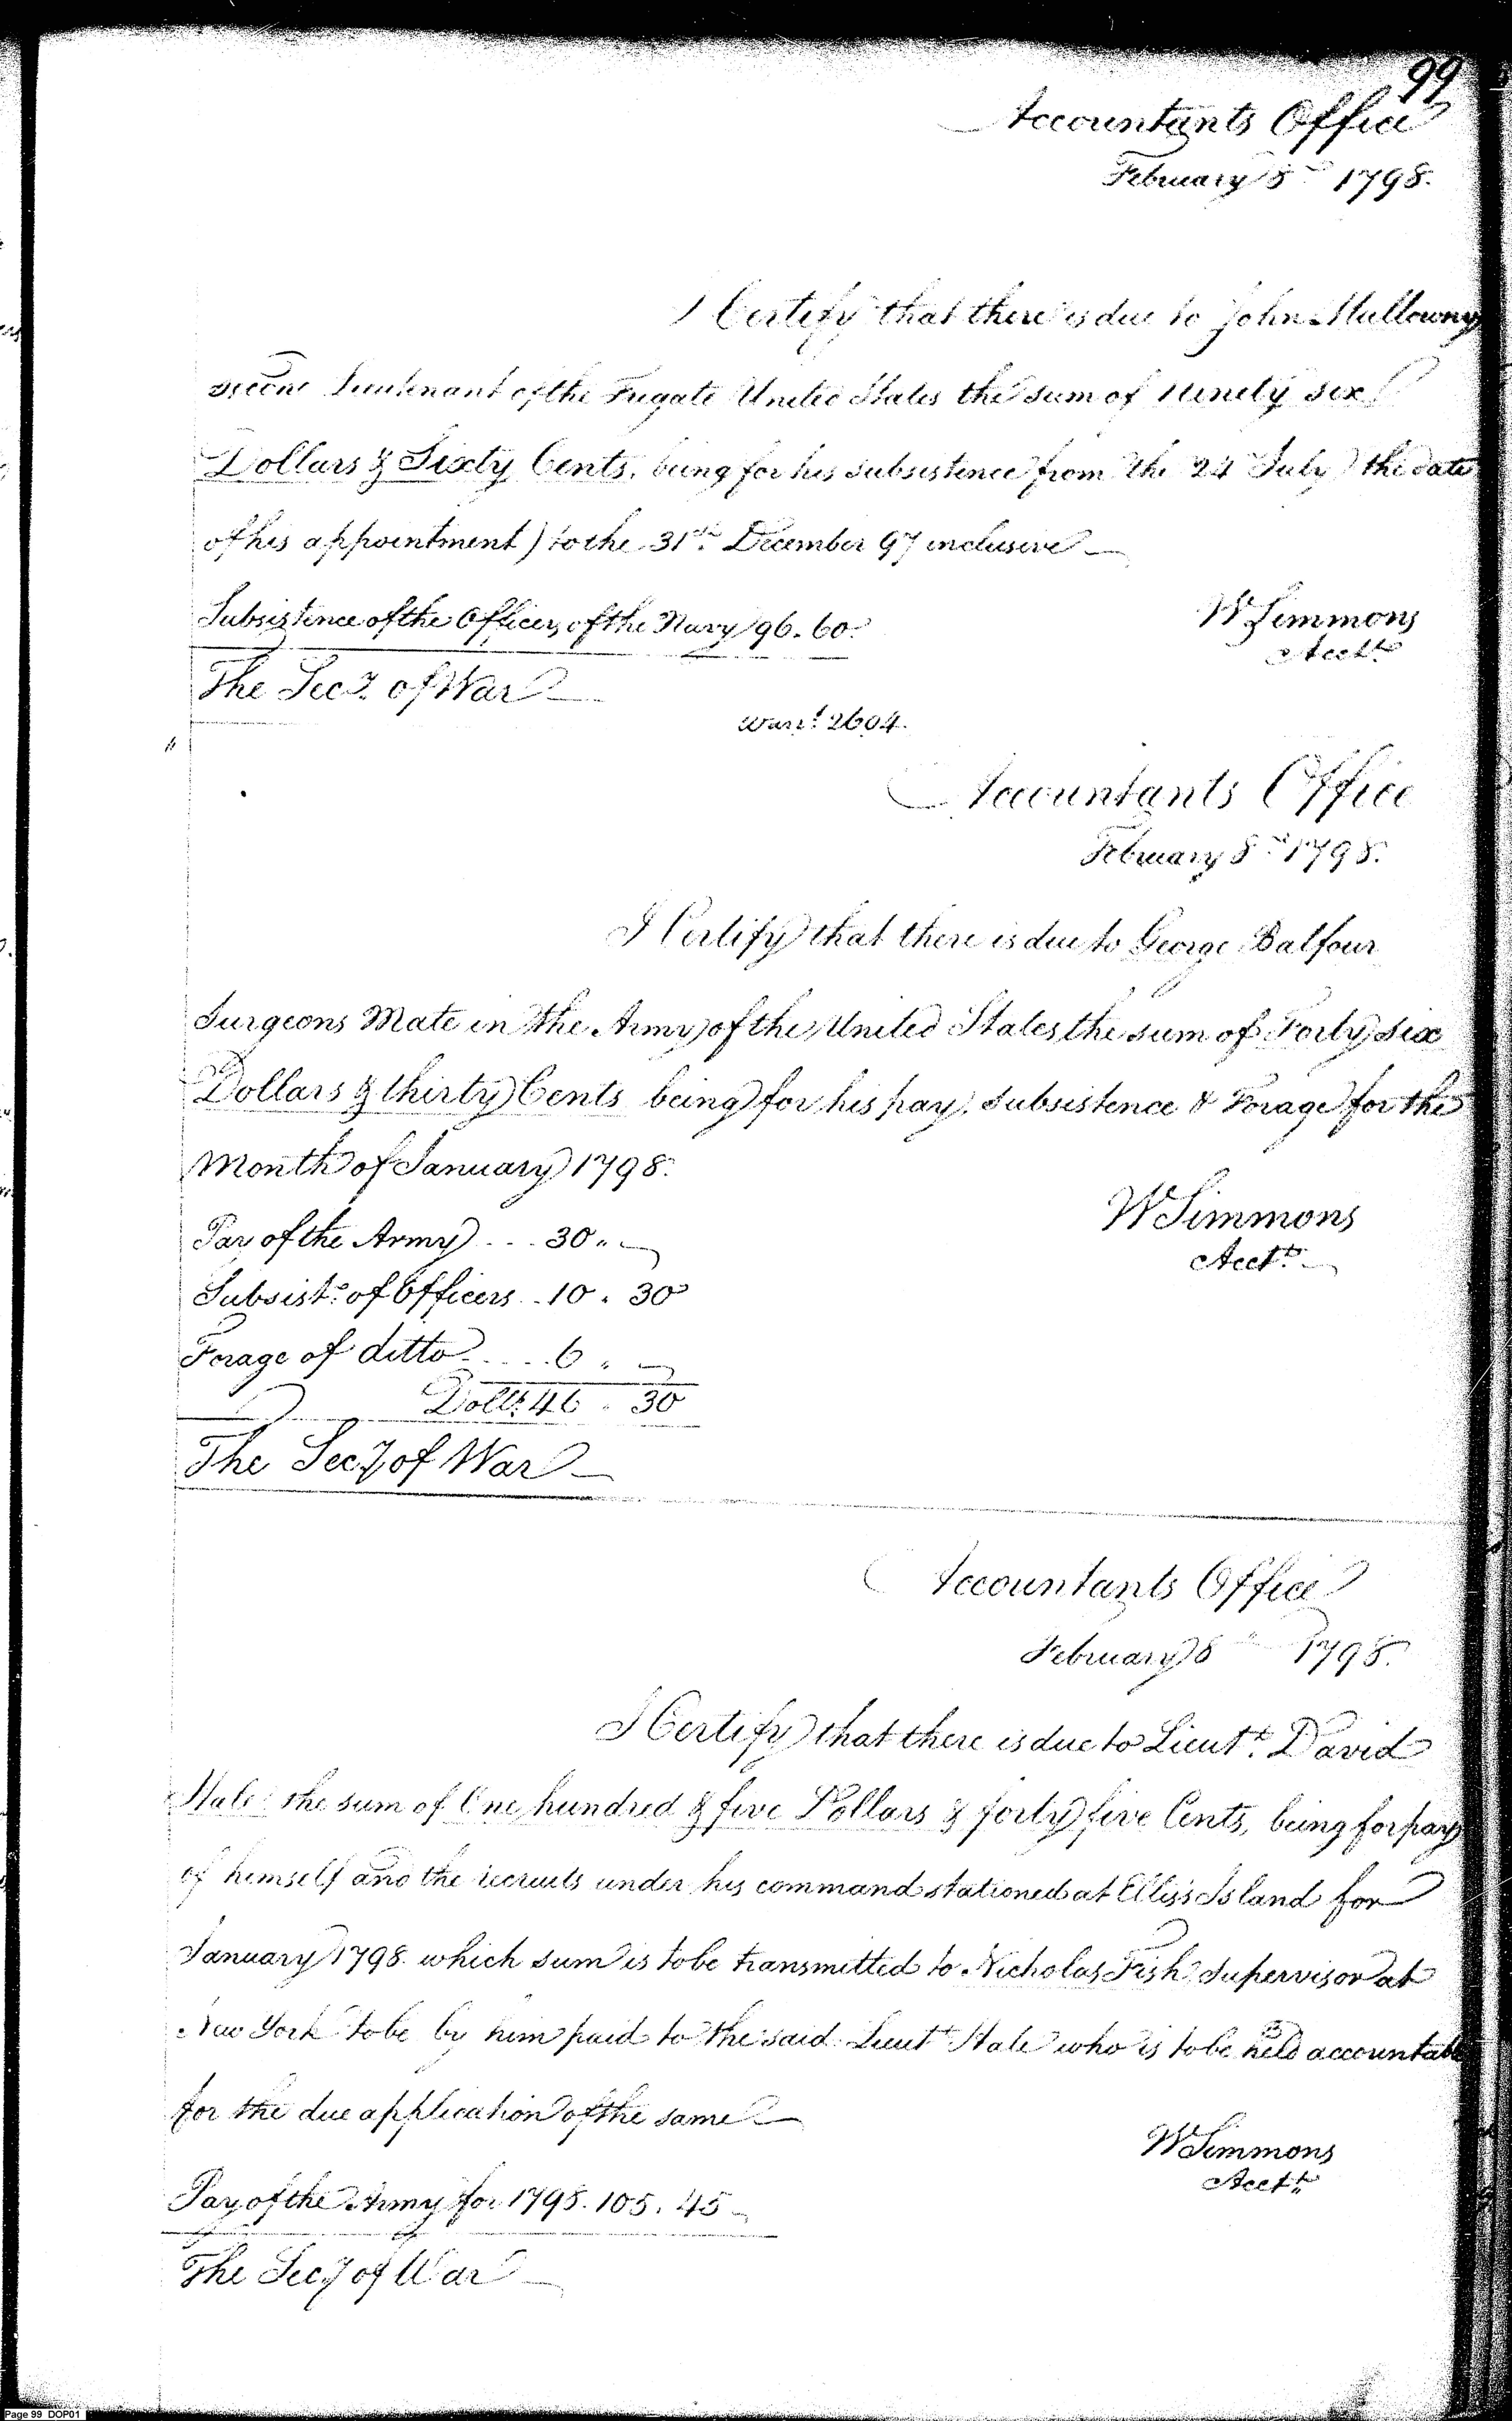 99
Accountants Office
February 8th 1798.
I Certify that there is due to John Mullowny
second Lieutenant of the Frigate United States the sum of Ninety six
Dollars & Sixty Cents, being for his subsistence from the 24 July (the date
of his appointment) to the 31st December 97 inclusive
Subsistence of the Officers of the Navy 96.60.
W Simmons
Acctt
The Secy of War
Warrt 2604.
Accountants Office
February 8th 1798.
I Certify that there is due to George Balfour
Surgeons Mate in the Army of the United States the sum of Forty six
Dollars & thirty Cents being for his pay, subsistence & Forage for the
Month of January 1798.
W Simmons
Acctt
Pay of the Army ... 30 "
Subsistce of Officers .. 10 . 30
Forage of ditto ..... 6 "
Dolls 46 . 30
The Secy of War
Accountants Office
February 8th 1798.
I Certify that there is due to Lieutt David
Hale the sum of One hundred & five Dollars & forty five Cents, being for pay
of himself and the recruits under his command stationed at Ellis's Island for
January 1798. which sum is to be transmitted to Nicholas Fish Supervisor at
New York to be by him paid to the said Lieutt Hale who is to be held accountable
for the due application of the same
W Simmons
Acctt
Pay of the Army for 1798. 105.45
The Secy of War
Page 99 DOP01